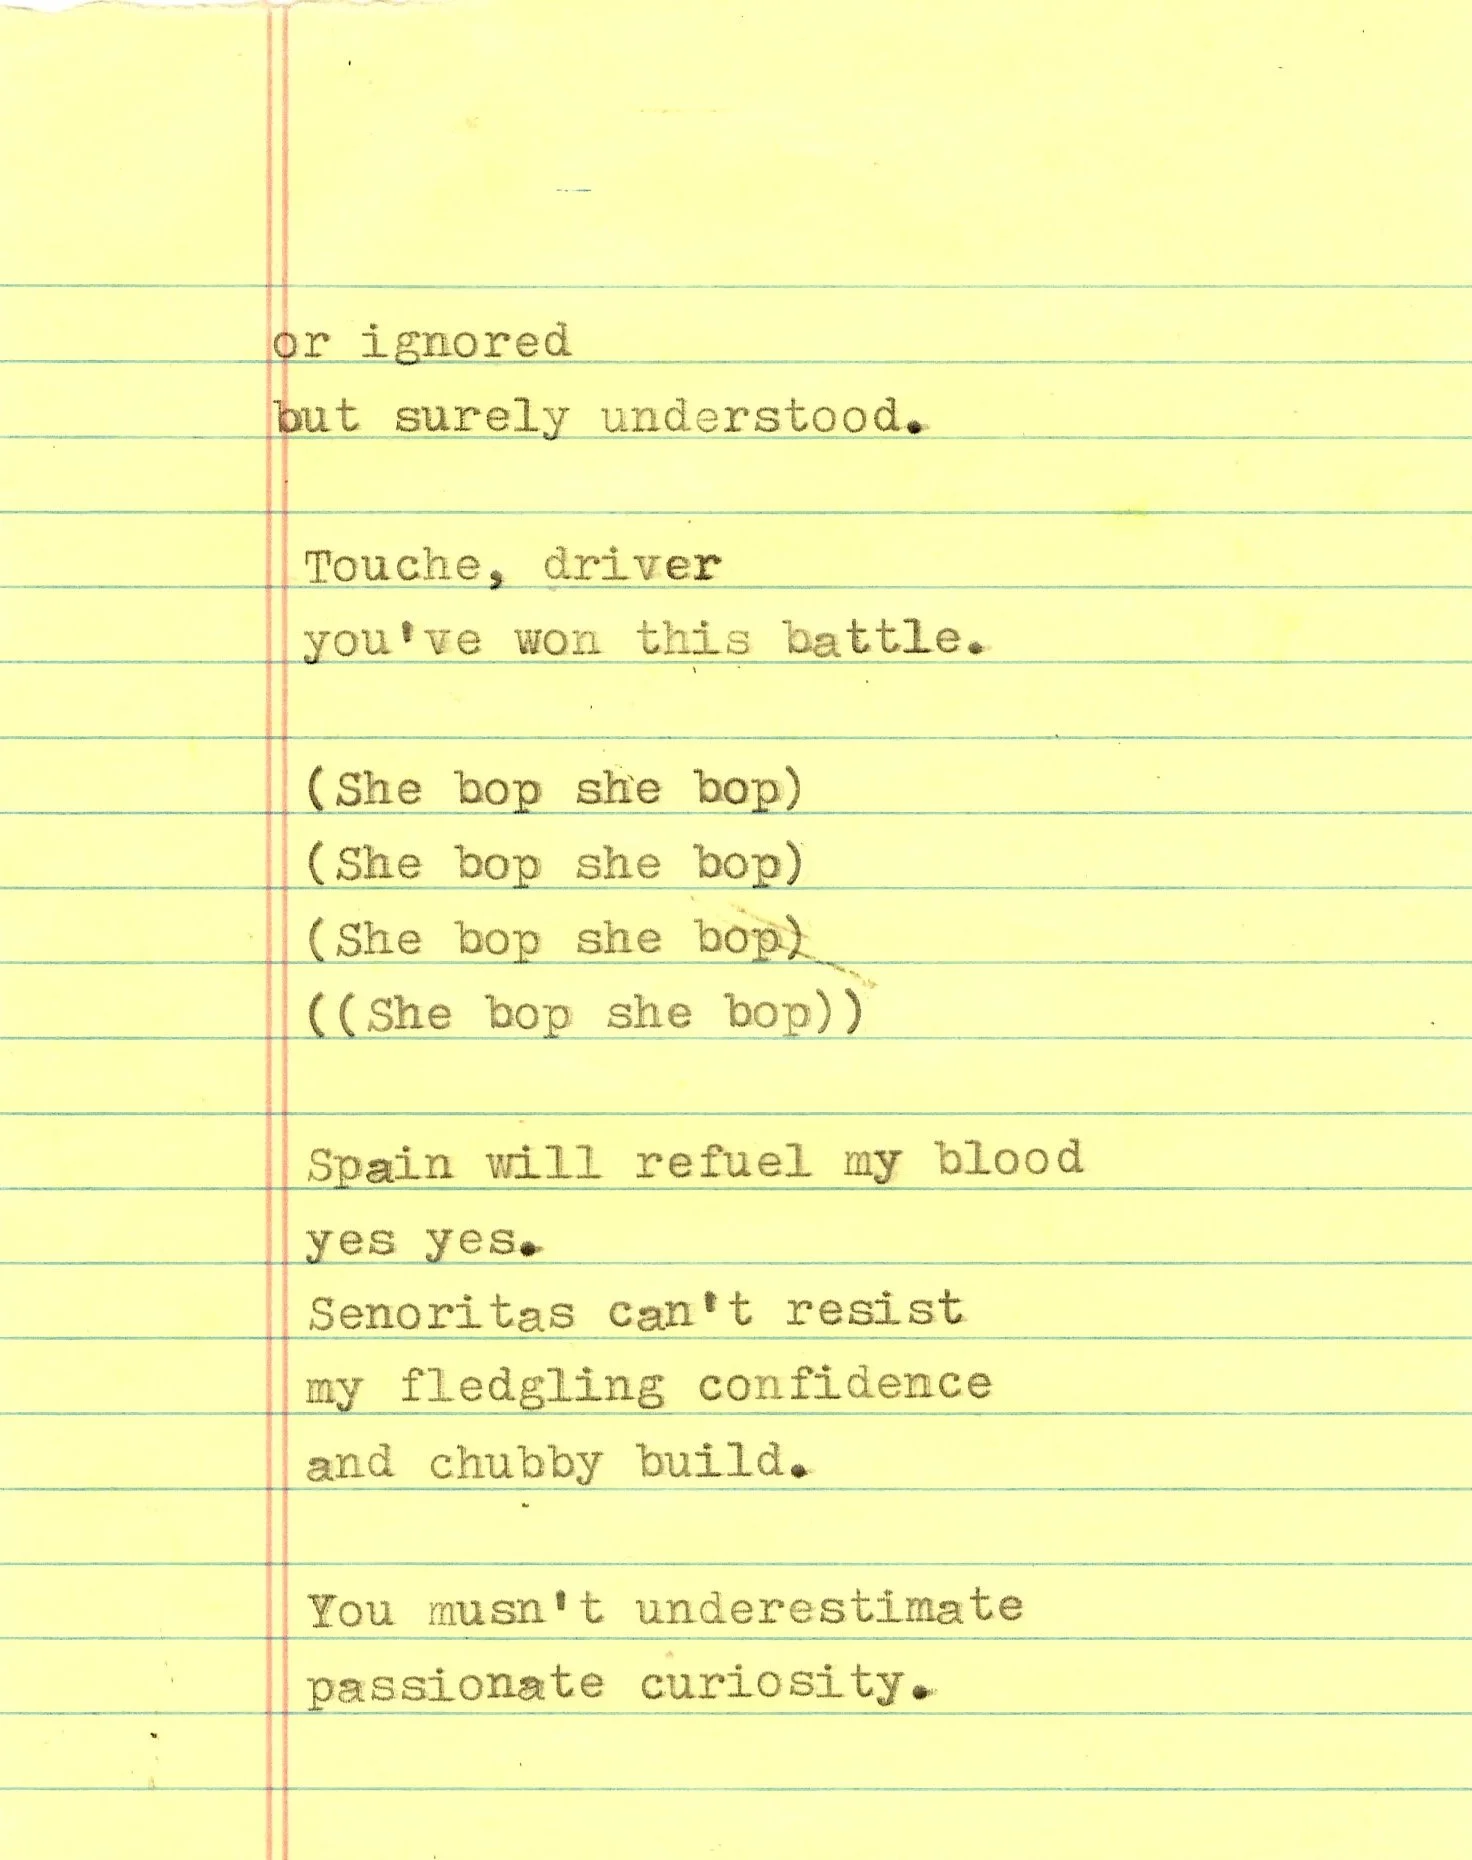 or ignored
but surely understood.
Touche, driver
you've won this battle.
(She bop she bop)
(She bop she bop)
(She bop she bop)
((She bop she bop))
Spain will refuel my blood
yes yes.
Senoritas can't resist
my fledgling confidence
and chubby build.
You musn't underestimate
passionate curiosity.